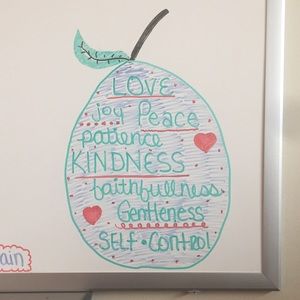 LOVE
joy Peace
patience
KINDNESS
faithfullness
Gentleness
SELF • CONTROL
ain